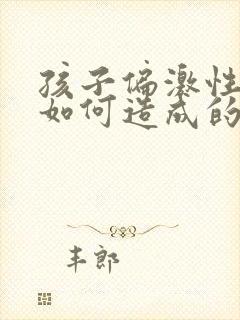 孩子偏激性
如何造成的
丰郎